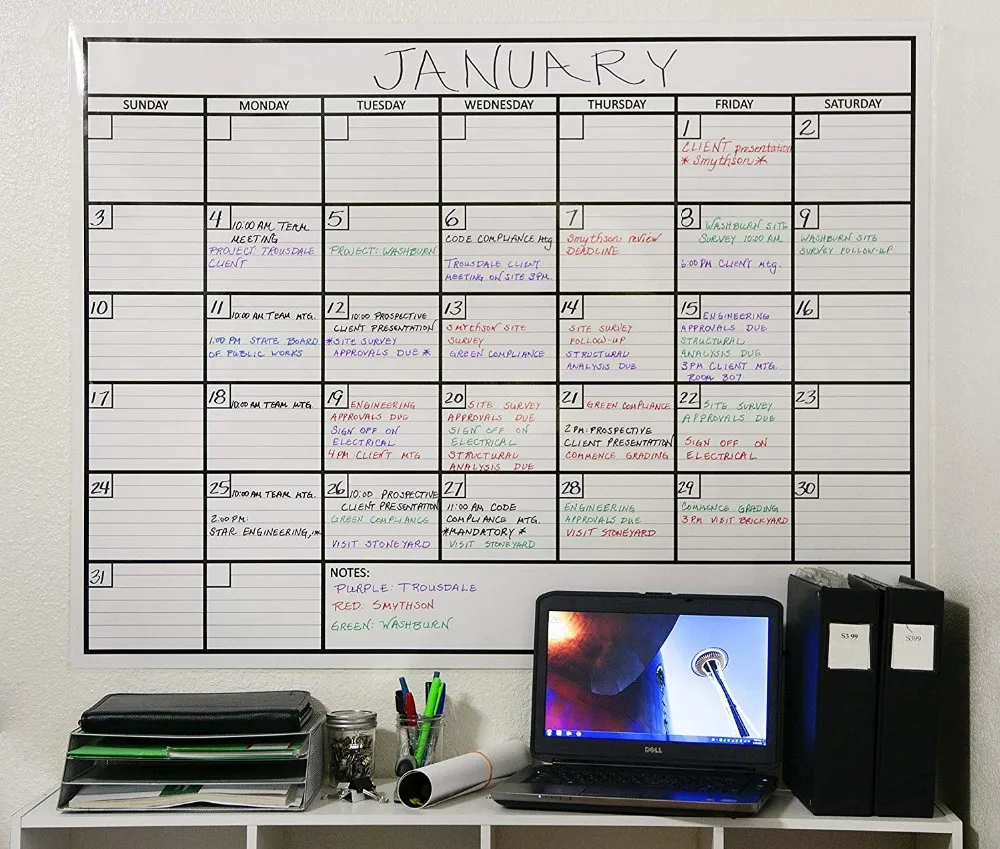 JANUARY
SUNDAY MONDAY TUESDAY WEDNESDAY THURSDAY FRIDAY SATURDAY
1
CLIENT presentation
*Smythson*
2
3
4 10:00 AM TEAM
MEETING
PROJECT: TROUSDALE
CLIENT
5
PROJECT: WASHBURN
6
CODE COMPLIANCE mtg.
TROUSDALE CLIENT
MEETING ON SITE 3PM.
7
Smythson review
DEADLINE
8 WASHBURN SITE
SURVEY 10:00 AM
6:00 PM CLIENT mtg.
9
WASHBURN SITE
SURVEY FOLLOW-UP
10
11 10:00 AM TEAM MTG.
1:00 PM STATE BOARD
OF PUBLIC WORKS
12 10:00 PROSPECTIVE
CLIENT PRESENTATION
*SITE SURVEY
APPROVALS DUE *
13
SMYTHSON SITE
SURVEY
GREEN COMPLIANCE
14
SITE SURVEY
FOLLOW-UP
STRUCTURAL
ANALYSIS DUE
15 ENGINEERING
APPROVALS DUE
STRUCTURAL
ANALYSIS DUE
3PM CLIENT MTG.
ROOM 307
16
17
18 10:00 AM TEAM MTG.
19 ENGINEERING
APPROVALS DUE
SIGN OFF ON
ELECTRICAL
4PM CLIENT MTG
20 SITE SURVEY
APPROVALS DUE
SIGN OFF ON
ELECTRICAL
STRUCTURAL
ANALYSIS DUE
21 GREEN COMPLIANCE
2PM: PROSPECTIVE
CLIENT PRESENTATION
COMMENCE GRADING
22 SITE SURVEY
APPROVALS DUE
SIGN OFF ON
ELECTRICAL
23
24
25 10:00 AM TEAM MTG.
2:00 PM:
STAR ENGINEERING,
26 10:00 PROSPECTIVE
CLIENT PRESENTATION
GREEN COMPLIANCE
VISIT STONEYARD
27
11:00 AM CODE
COMPLIANCE MTG.
*MANDATORY *
VISIT STONEYARD
28
ENGINEERING
APPROVALS DUE
VISIT STONEYARD
29
COMMENCE GRADING
3PM VISIT BRICKYARD
30
31
NOTES:
PURPLE: TROUSDALE
RED: SMYTHSON
GREEN: WASHBURN
DELL
S3 99
S399